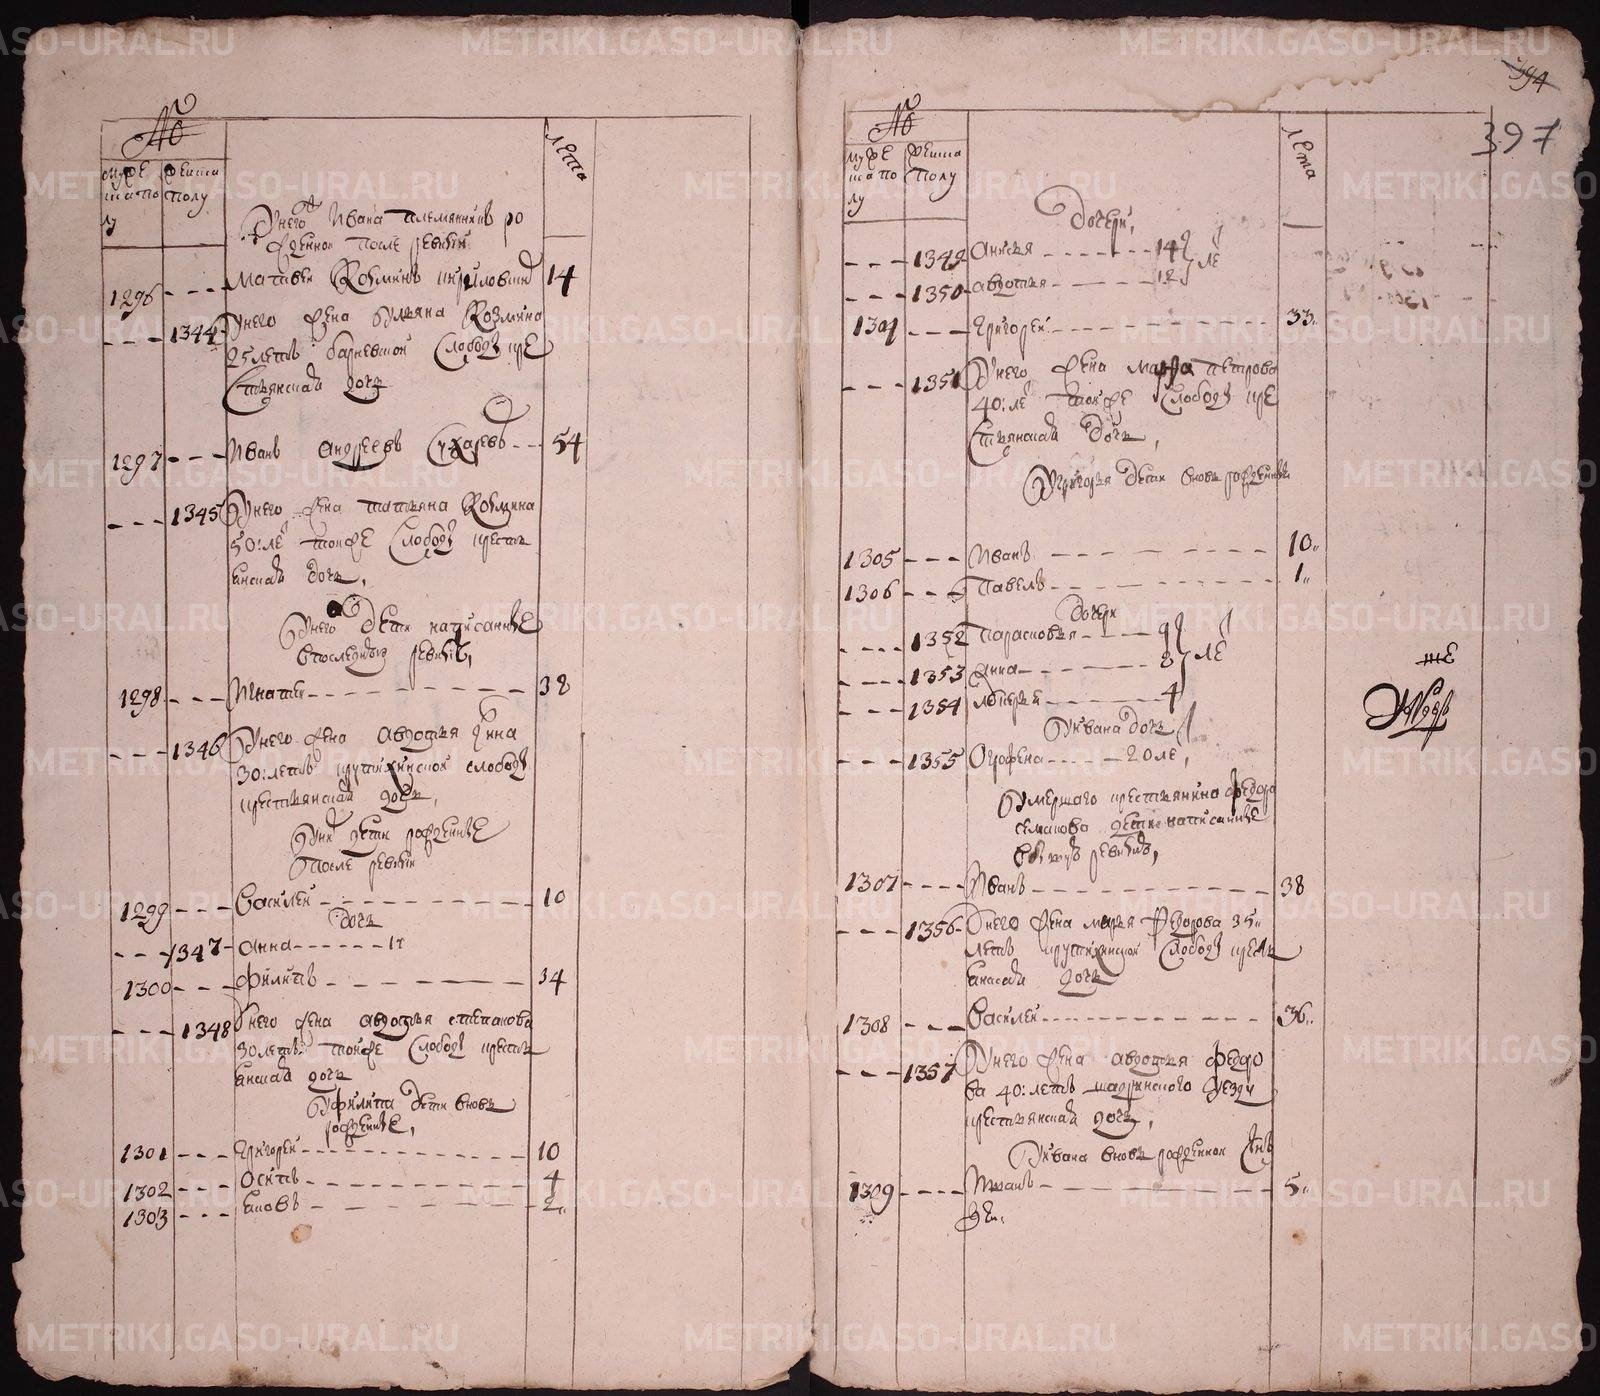 №
муже
ска по
лу
женска
полу
лета
У него Ивана племянникъ ро
жденной после ревизии
1296 Матвеи Козминъ 14
1344 У него жена Ульяна Козмина
25 летъ слободы кре
стьянская дочь
1297 Иванъ Андреевъ Сухаревъ 54
1345 У него жена Татьяна Козмина
50: ле тойже слободы кресть
янская дочь,
У него дети написанные
в последнюю ревизию,
1298 Игнатеи 38
1346 У него жена Авдотья
30: летъ крутихинской слободы
крестьянская дочь,
У них дети рожденные
после ревизии
1299 Василеи 10
дочь
1347 Анна
1300 Филипъ 34
1348 У него жена Авдотья Степанова
30 летъ тойже слободы кресть
янская дочь
У Филипа дети вновь
рожденные,
1301 Григореи 10
1302 Осипъ 4
1303 Яковъ 2
394
397
№
муже
ска по
лу
женска
полу
лета
Дочери,
1349 Анисья 14
ле
1350 Авдотья 12
1304 Григореи 33
1351 У него жена Марфа Петрова
40: ле тойже слободы кре
стьянская дочь,
У Григорья дети вновь рожденныи
1305 Иванъ 10
1306 Павелъ 1
Дочери
1352 Парасковья 9
ле
1353 Анна 8
1354 4
У Ивана дочь
1355 Огрофена 20 ле,
Умершаго крестьянина Федора
дети написанные
ревизию,
1307 Иванъ 38
1356 У него жена Марья Федорова 35
летъ крутихинской слободы кресть
янская дочь
1308 Василеи 36
1357 У него жена Авдотья Федоро
ва 40: летъ шадринского уезду
крестьянская дочь,
У Ивана вновь рожденной сынъ
1309 5